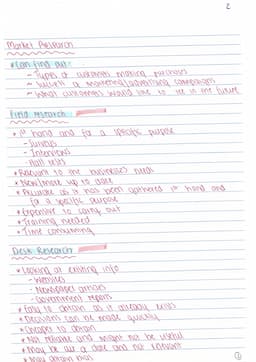 2
Market Research
* Can find out:
- Types of customers making purchases
- Success of marketing/advertising campaigns
- What customers would like to see in the future
Field research
* 1st hand and for a specific purpose
- Surveys
- Interviews
- Hall tests
* Relevant to the business's needs
* New/more up to date
* Accurate as it has been gathered 1st hand and
for a specific purpose
* Expensive to carry out
* Training needed
* Time consuming
Desk Research
* Looking at existing info
- Websites
- Newspaper articles
- Government reports
* Easy to obtain as it already exists
* Decisions can be made quickly
* Cheaper to obtain
* Not reliable and might not be useful
* May be out of date and not relevant
* May contain bias